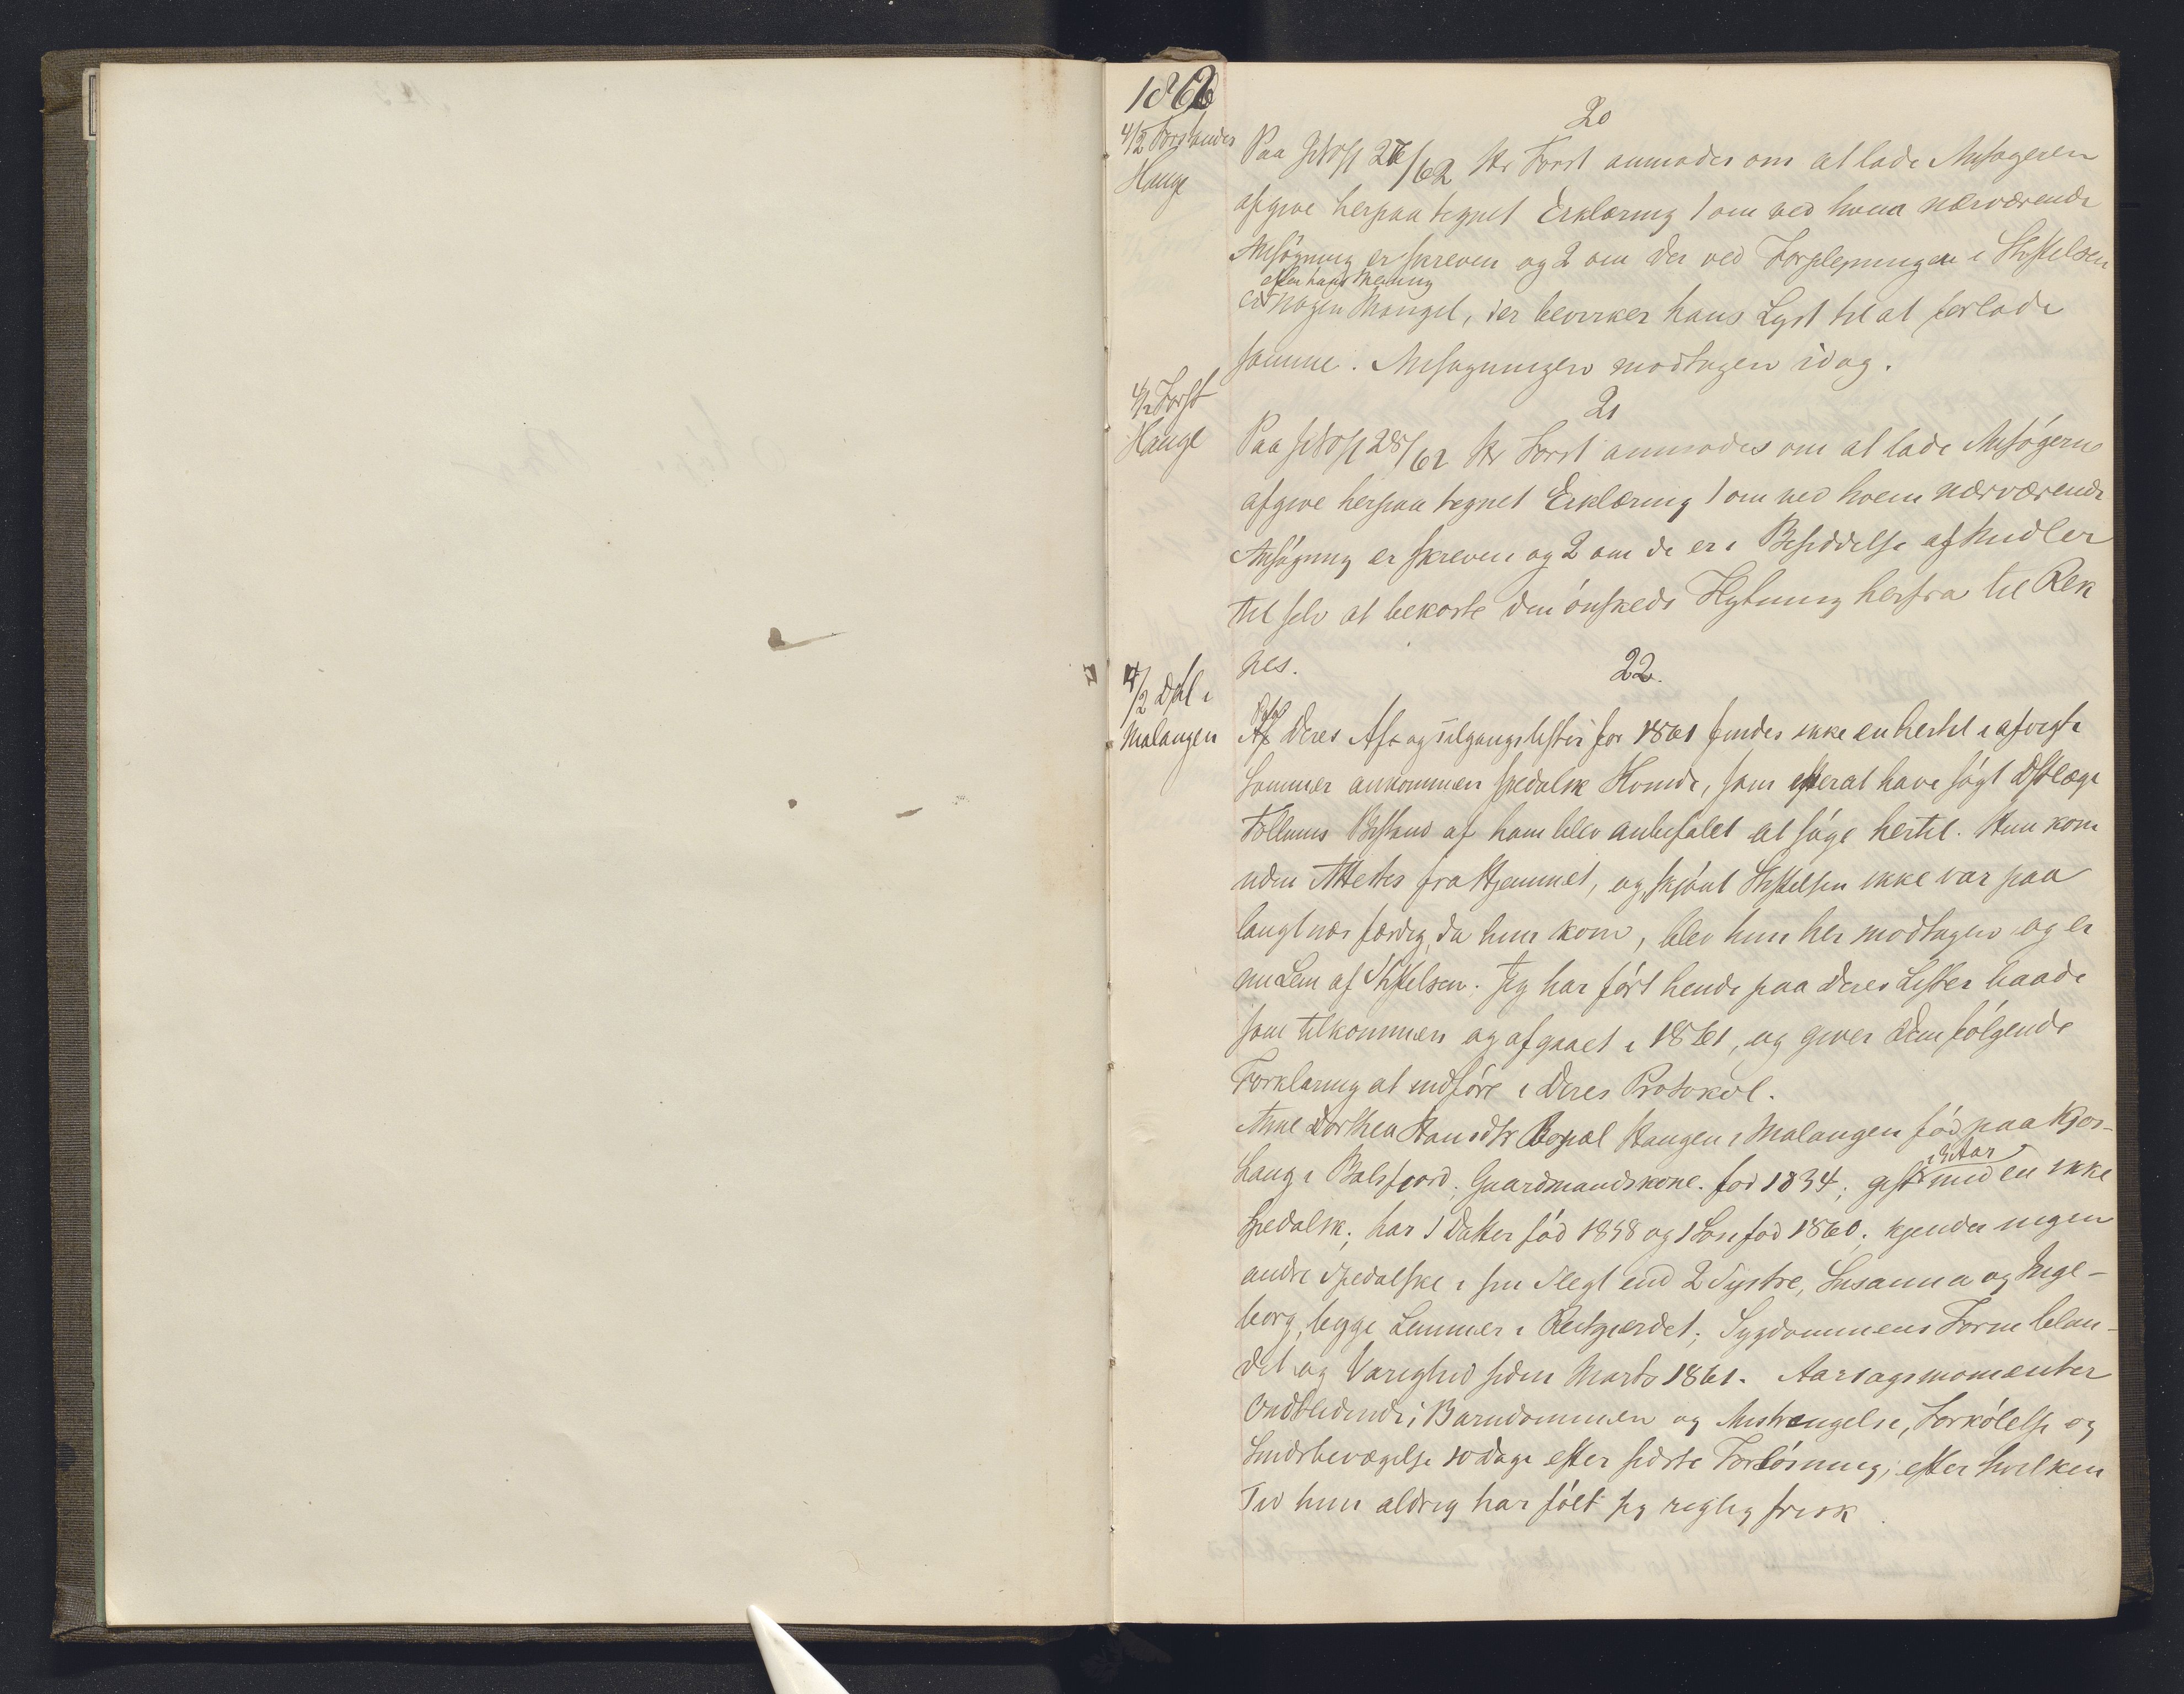 1862
20
4/2 Forstander
Hauge
Paa JNo 27/62 Hr Forst anmodes om at lade Ansøgeren
afgive herpaa tegnet Erklæring 1 om ved hvem nærværende
Ansøgning er skreven og 2 om der ved Forplejningen i Stiftelsen
efter hans Mening
er nogen Mangel, der bevirker hans Lyst til at forlade
samme. Ansøgningen modtagen idag.
21
4/2 Forst
Hauge
Paa JNo 28/62 Hr Forst anmodes om at lade Ansøgerne
afgive herpaa tegnet Erklæring 1 om ved hvem nærværende
Ansøgning er skreven og 2 om de er i Besiddelse af Midler
til selv at bekoste den ønskede Flytning herfra til Rek
nes.
22.
4/2 Dhl i
Malangen
Deres Af- og Tilgangslister for 1861 findes ikke en hertil i afvigte
Sommer ankommen spedalsk Kvinde, som efterat have søgt Dstlæge
Follums Bistand af ham blev anbefalet at søge hertil. Hun kom
uden Attester fra Hjemmet, og, skjönt Stiftelsen ikke var paa
langt nær færdig, da hun kom, blev hun her modtagen og er
nu Lem af Stiftelsen. Jeg har ført hende paa Deres Lister baade
som tilkommen og afgaaet i 1861, og giver Dem følgende
Forklaring at indføre i Deres Protokol.
Anne Dorthea Hansdtr Bopæl Haugen i Malangen fød paa Kjos-
i 3 Aar
Laug i Balsfjord; Gaardmandskone. fød 1834; gift med en ikke
Spedalsk; har 1 Datter fød 1858 og 1 Søn fød 1860; kjender ingen
andre Spedalske i sin Slegt end 2 Systre, Susanna og Inge-
borg, begge Lemmer i Reitgjerdet; Sygdommens Form blan-
det og Varighed siden Marts 1861. Aarsagsmomenter
Ondtlidende i Barndommen og Anstrængelse, Forkølelse og
Sindsbevægelse 10 Dage efter sidste Forløsning, efter hvilken
Tid hun aldrig har følt sig rigtig frisk.